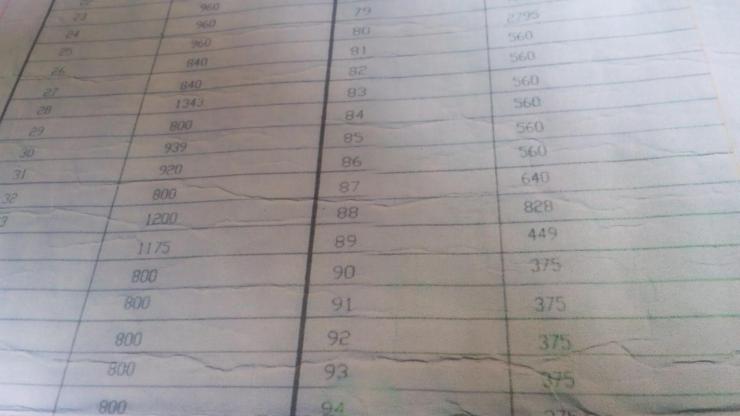 960 79 2795
23 960 80 560
24 960 81 560
25 840 82 560
26 840 83 560
27 1343 84 560
28 800 85 560
29 939 86 640
30 920 87 828
31 800 88 449
32 1200 89 375
3 1175 90 375
800 91 375
800 92 375
800 93
800 94
800